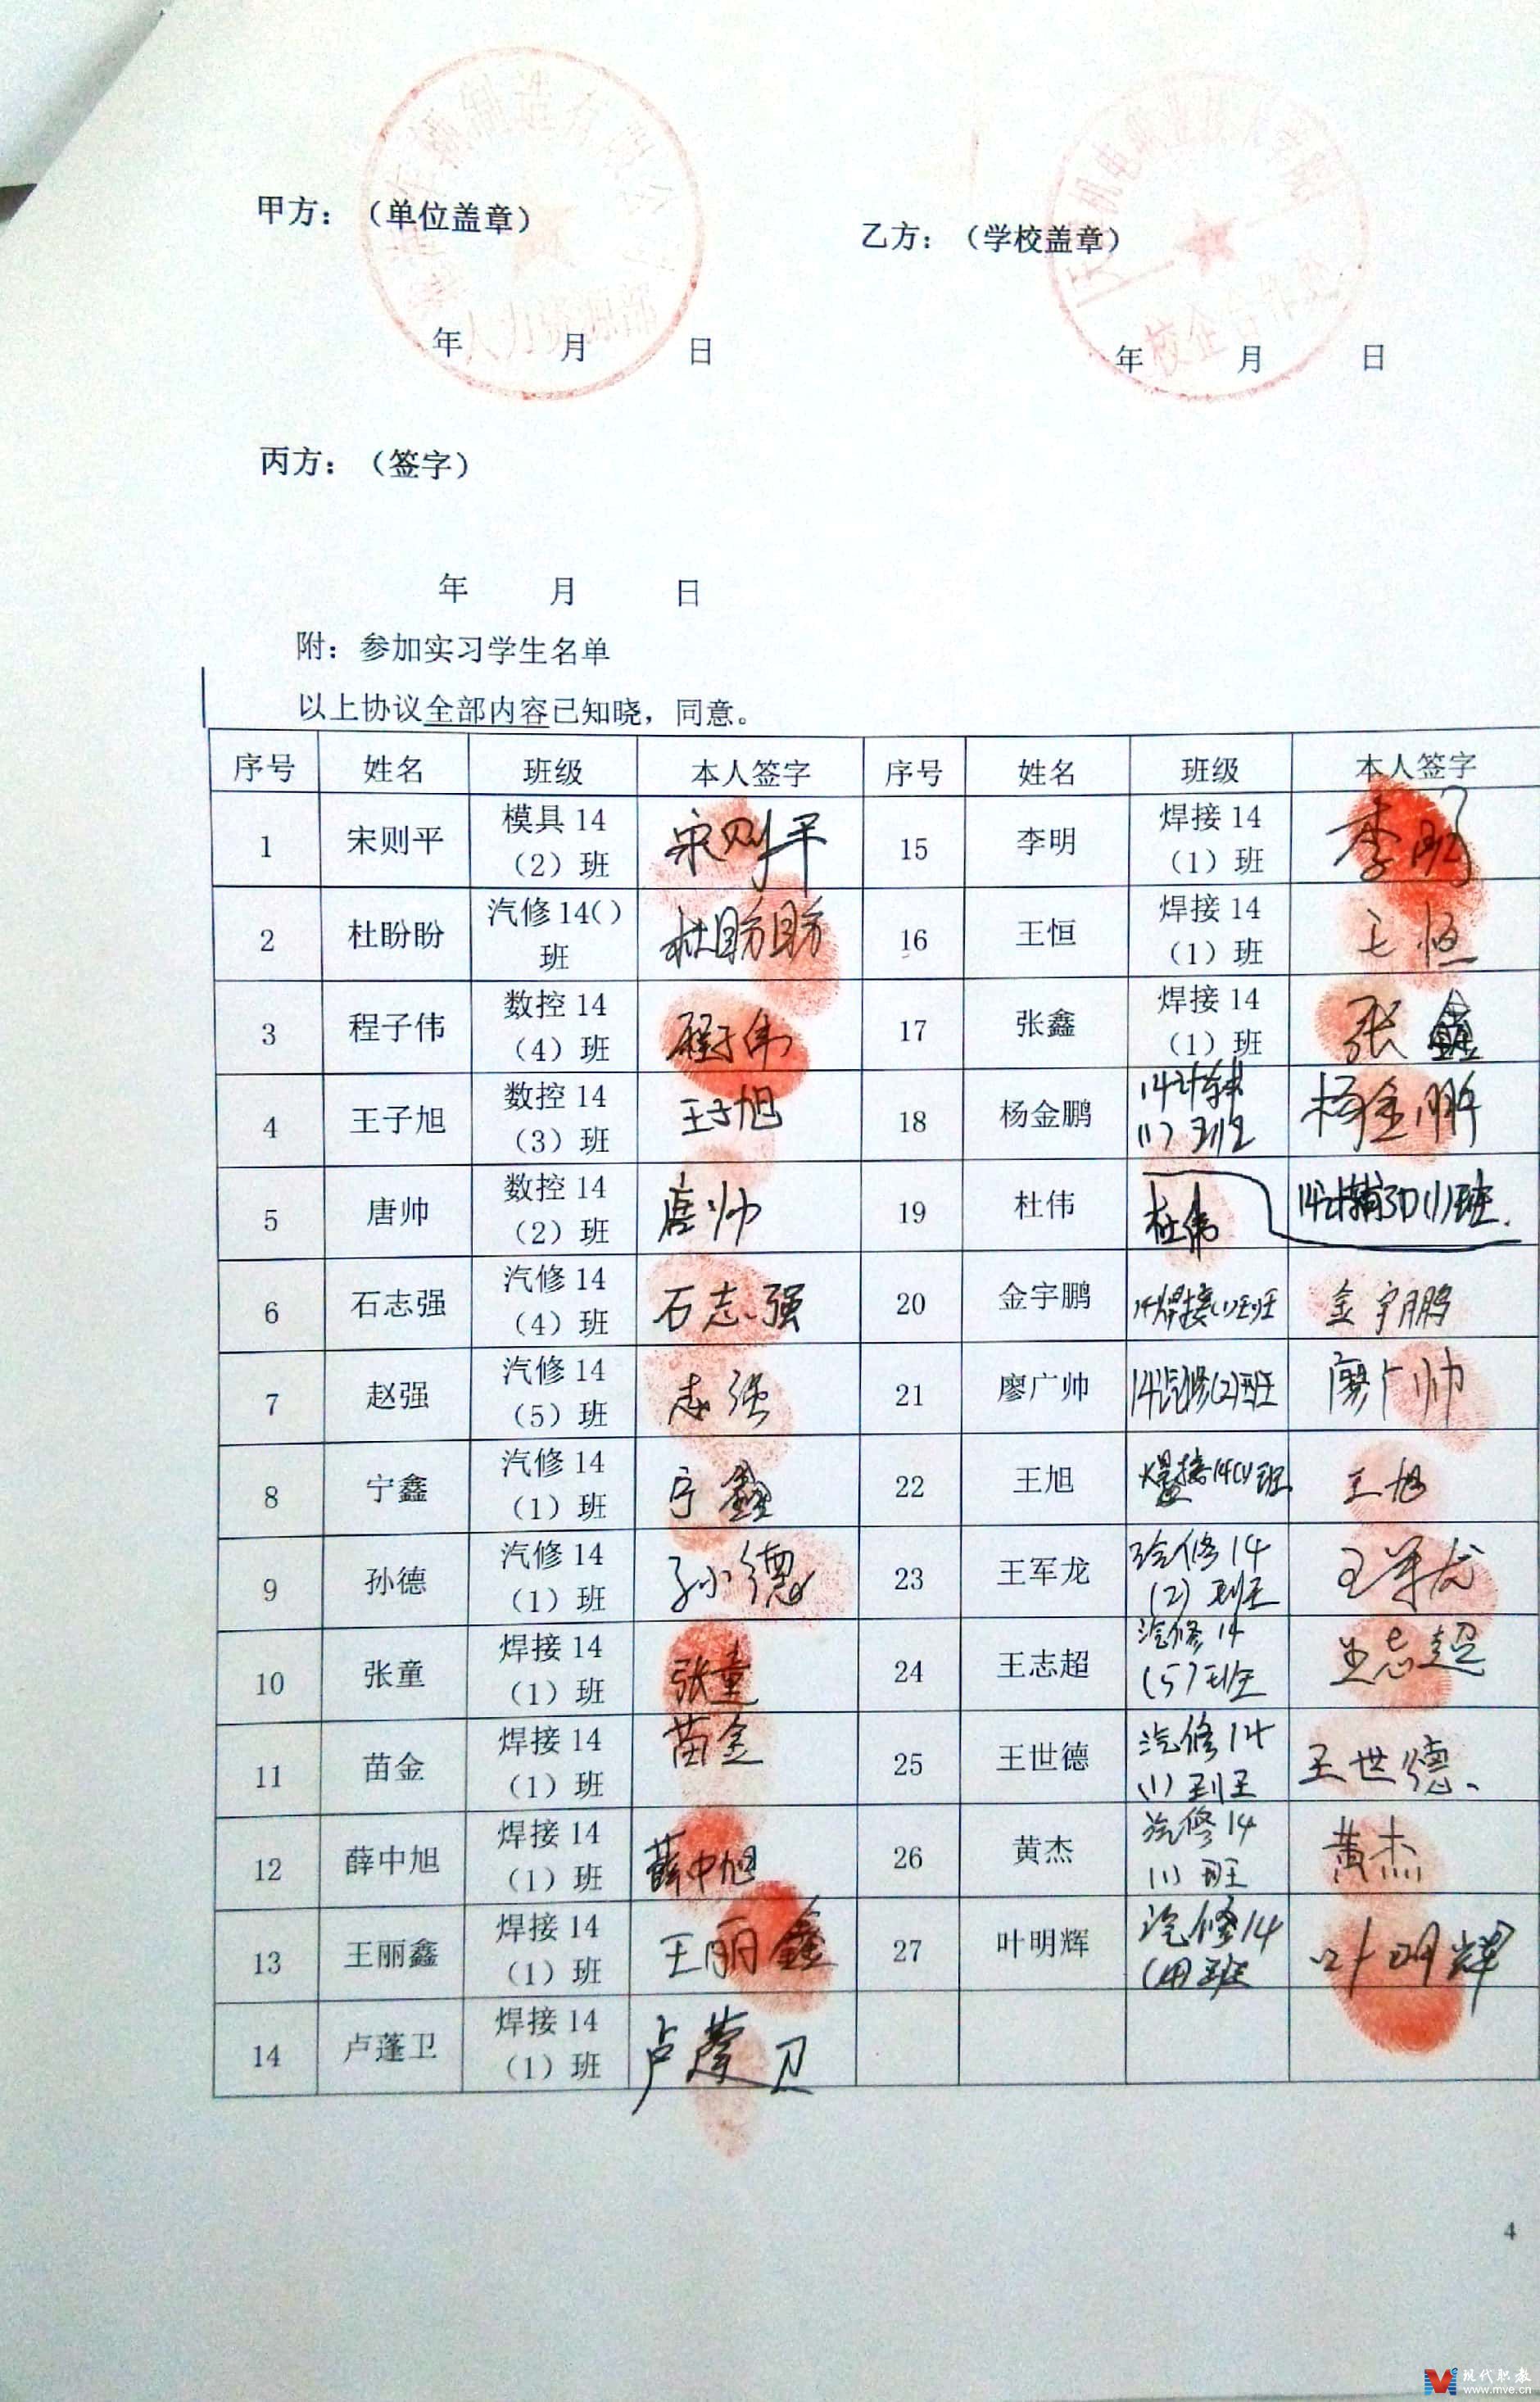 甲方：（单位盖章）
乙方：（学校盖章）
人力资源部
校企合作处
年 月 日
年 月 日
丙方：（签字）
年 月 日
附：参加实习学生名单
以上协议全部内容已知晓，同意。
序号 姓名 班级 本人签字 序号 姓名 班级 本人签字
1 宋则平 模具14（2）班 宋则平 15 李明 焊接14（1）班 李明
2 杜盼盼 汽修14()班 杜盼盼 16 王恒 焊接14（1）班 王恒
3 程子伟 数控14（4）班 程子伟 17 张鑫 焊接14（1）班 张鑫
4 王子旭 数控14（3）班 王子旭 18 杨金鹏 (1)班 杨金鹏
5 唐帅 数控14（2）班 唐帅 19 杜伟 杜伟 14计辅3D(1)班.
6 石志强 汽修14（4）班 石志强 20 金宇鹏 14焊接(1)班 金宇鹏
7 赵强 汽修14（5）班 志强 21 廖广帅 14汽修(2)班 廖广帅
8 宁鑫 汽修14（1）班 宁鑫 22 王旭 焊接14(1)班 王旭
9 孙德 汽修14（1）班 孙德 23 王军龙 汽修14(2)班 王军龙
10 张童 焊接14（1）班 张童 24 王志超 汽修14(5)班 王志超
11 苗金 焊接14（1）班 苗金 25 王世德 汽修14(1)班 王世德、
12 薛中旭 焊接14（1）班 薛中旭 26 黄杰 汽修14(1)班 黄杰
13 王丽鑫 焊接14（1）班 王丽鑫 27 叶明辉 汽修14 班 叶明辉
14 卢蓬卫 焊接14（1）班 卢蓬卫
4
现代职教
www.mve.cn